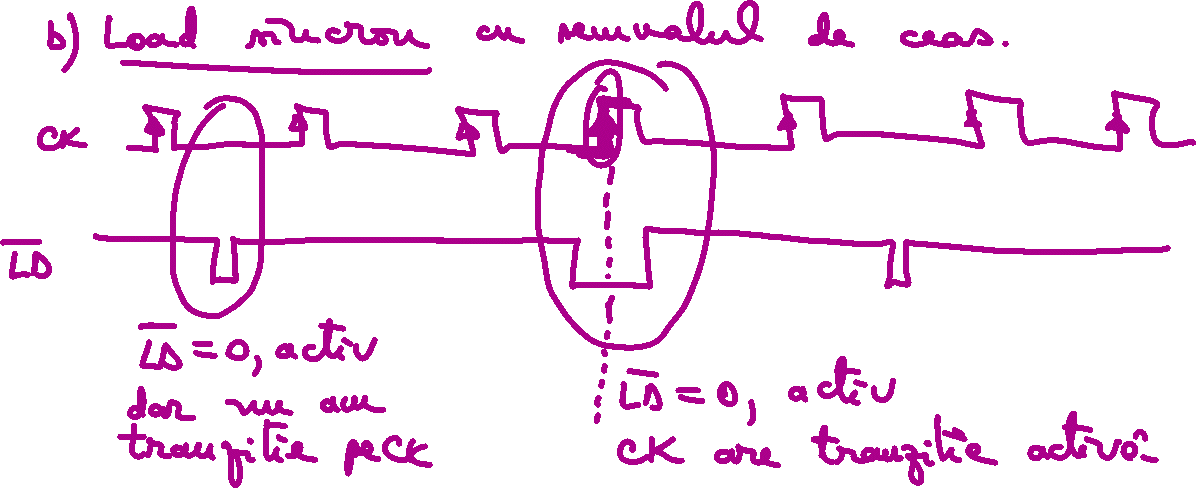 b) Load sincron cu semnalul de ceas.
CK
L̅D̅
L̅D̅ = 0, activ
dar nu am
tranziție pe CK
L̅D̅ = 0, activ
CK are tranziție activă